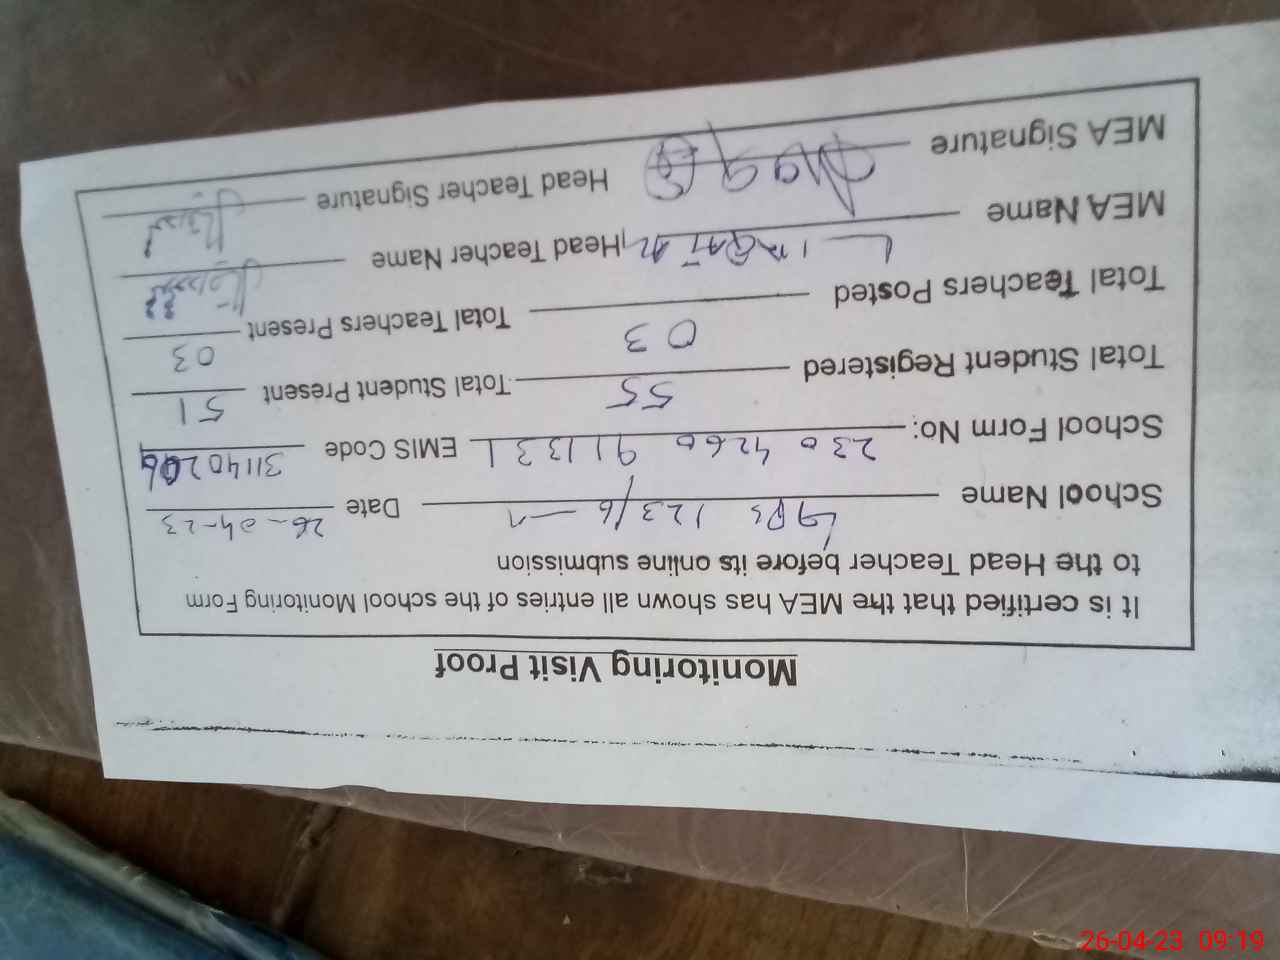 Monitoring Visit Proof
It is certified that the MEA has shown all entries of the school Monitoring Form
to the Head Teacher before its online submission
School Name GPS 123/6-R Date 26-04-23
School Form No: 230 4260 911331 EMIS Code 31140206
Total Student Registered 55 Total Student Present 51
Total Teachers Posted 03 Total Teachers Present 03
MEA Name Head Teacher Name
MEA Signature Head Teacher Signature
26-04-23 09:19